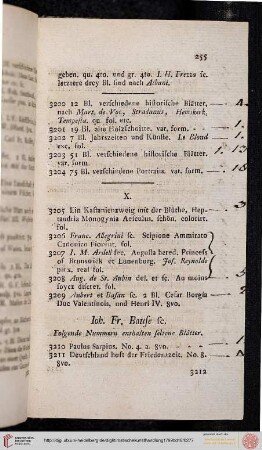 255
geben. qu. 4to. und gr. 4to. I. H. Frezza sc.
letztere drey Bl. sind nach Albani.
3200 12 Bl. verschiedene historische Blätter,
nach Mart. de Vos, Stradanus, Hemskerk,
Tempesta. qu. fol. etc.
3201 19 Bl. alte Holzschnitte. var. form.
3202 7 Bl. Jahrszeiten und Künste. Le Blond
exc. fol.
3203 51 Bl. verschiedene historische Blätter.
var. form.
3204 75 Bl. verschiedene Portraits. var. form.
X.
3205 Ein Kastanienzweig mit der Blüthe, Hep-
tandria Monogynia schön. colorirt.
fol.
3206 Franc. Allegrini sc. Scipione Ammirato
Canonico Fiorent. fol.
3207 I. M. Ardell fec. hered. Princess
of Brunswick et Lunenburg. Jos. Reynolds
pinx. real fol.
3208 Aug. de St. Aubin del. et sc. Au moins
soyez discret. fol.
3209 Aubert et Basan sc. 2 Bl. Cesar Borgia
Duc Valentinois, und Henri IV. 8vo.
Ioh. Fr. Bause sc.
Folgende Nummern enthalten seltene Blätter.
3210 Paulus Sarpius. No. 4. a. 8vo.
3211 Deutschland huft der Friedenszeit. No. 8.
8vo.
3212